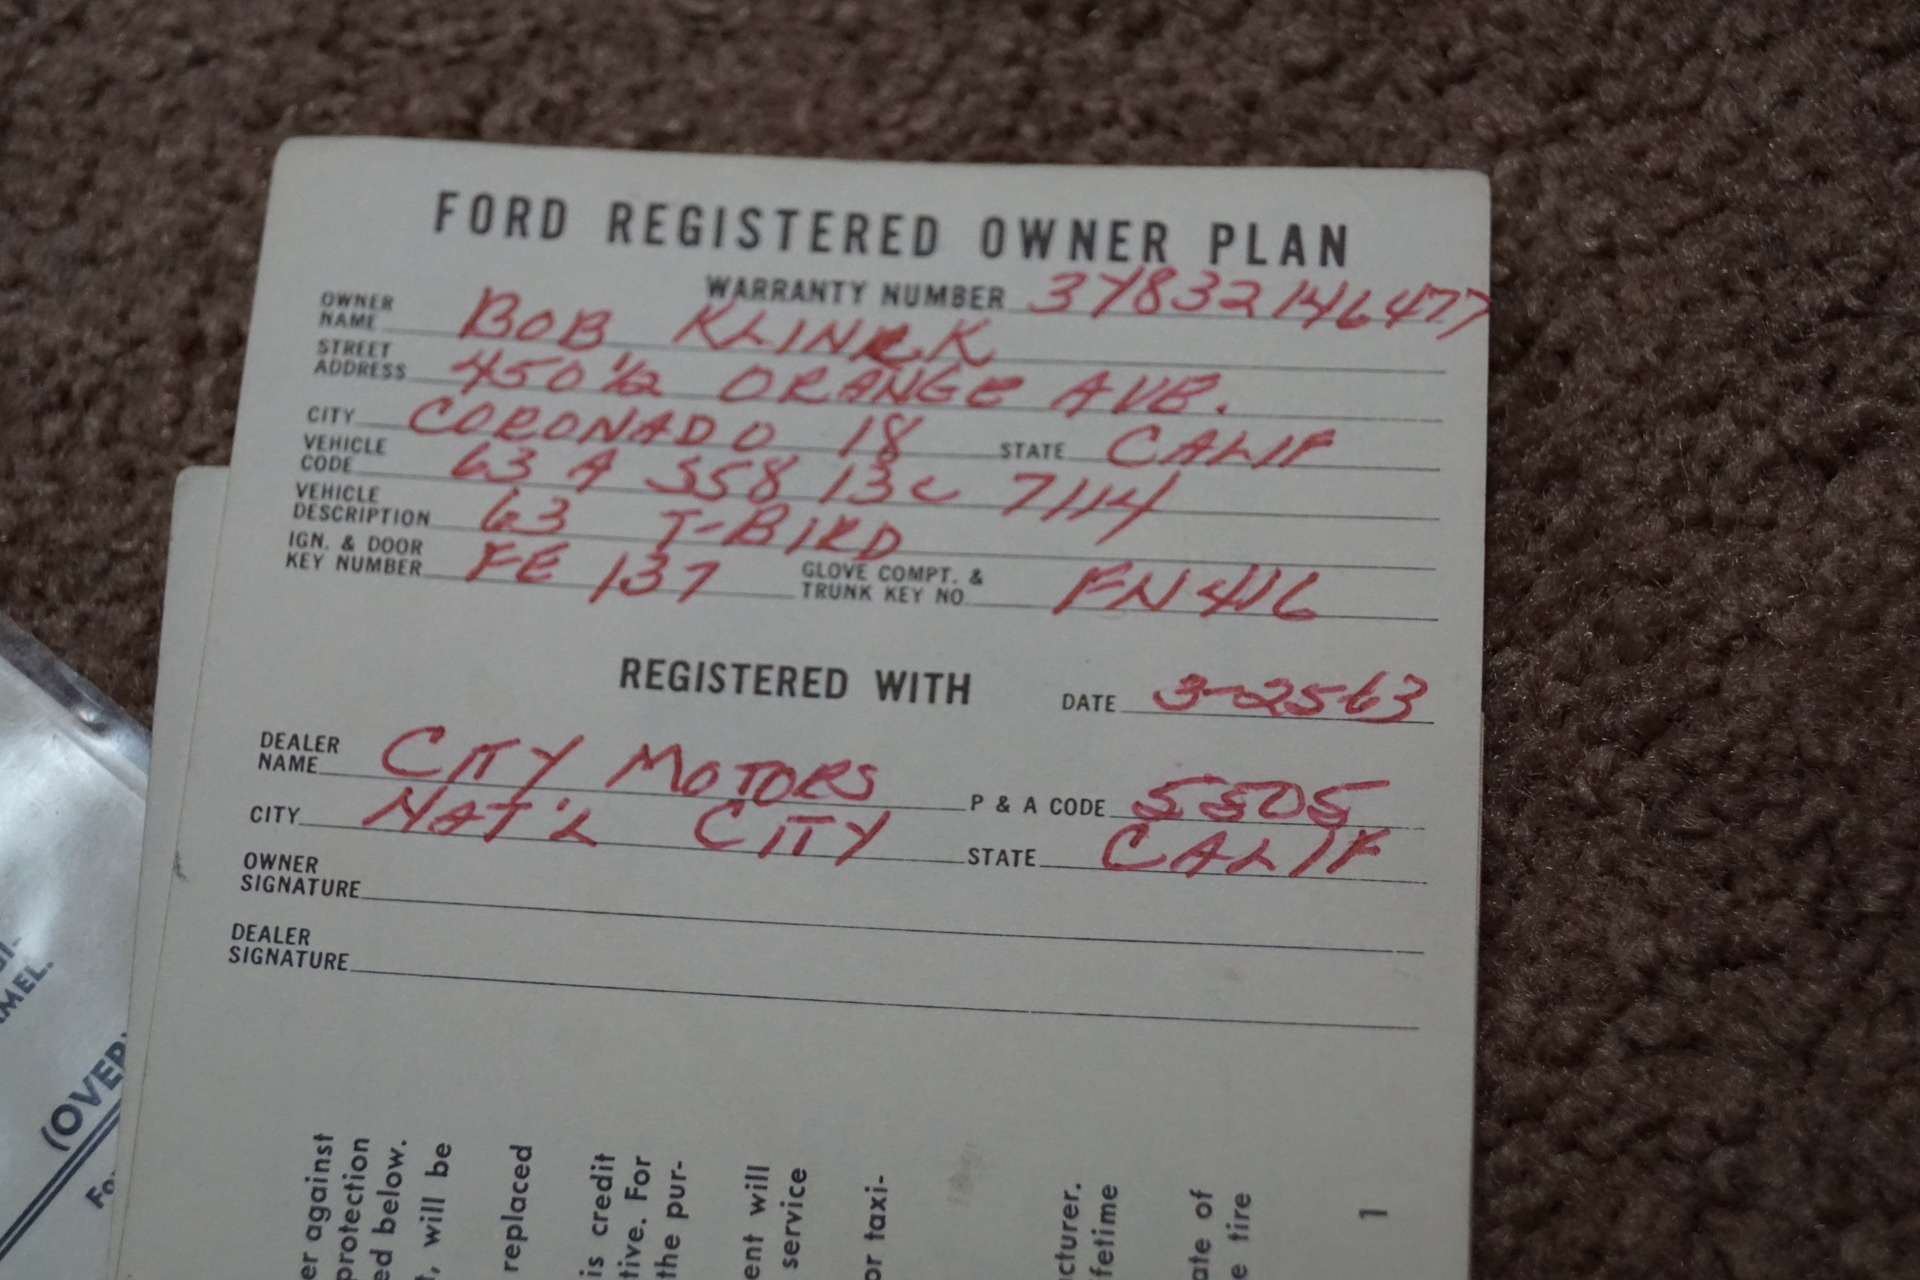 FORD REGISTERED OWNER PLAN
WARRANTY NUMBER 3Y83Z146477
OWNER NAME BOB
STREET ADDRESS 450 1/2 ORANGE AVE.
CITY CORONADO 18 STATE CALIF
VEHICLE CODE 63 A 558 13C 7114
VEHICLE DESCRIPTION 63 T-BIRD
IGN. & DOOR KEY NUMBER FE 137 GLOVE COMPT. & TRUNK KEY NO. FN 416
REGISTERED WITH DATE 3-25-63
DEALER NAME CITY MOTORS P & A CODE 5505
CITY NAT'L CITY STATE CALIF
OWNER SIGNATURE
DEALER SIGNATURE
er against
protection
ed below.
, will be
replaced
is credit
tive. For
the pur-
ent will
service
or taxi-
cturer.
fetime
ate of
e tire
1
MEL.
(OVER)